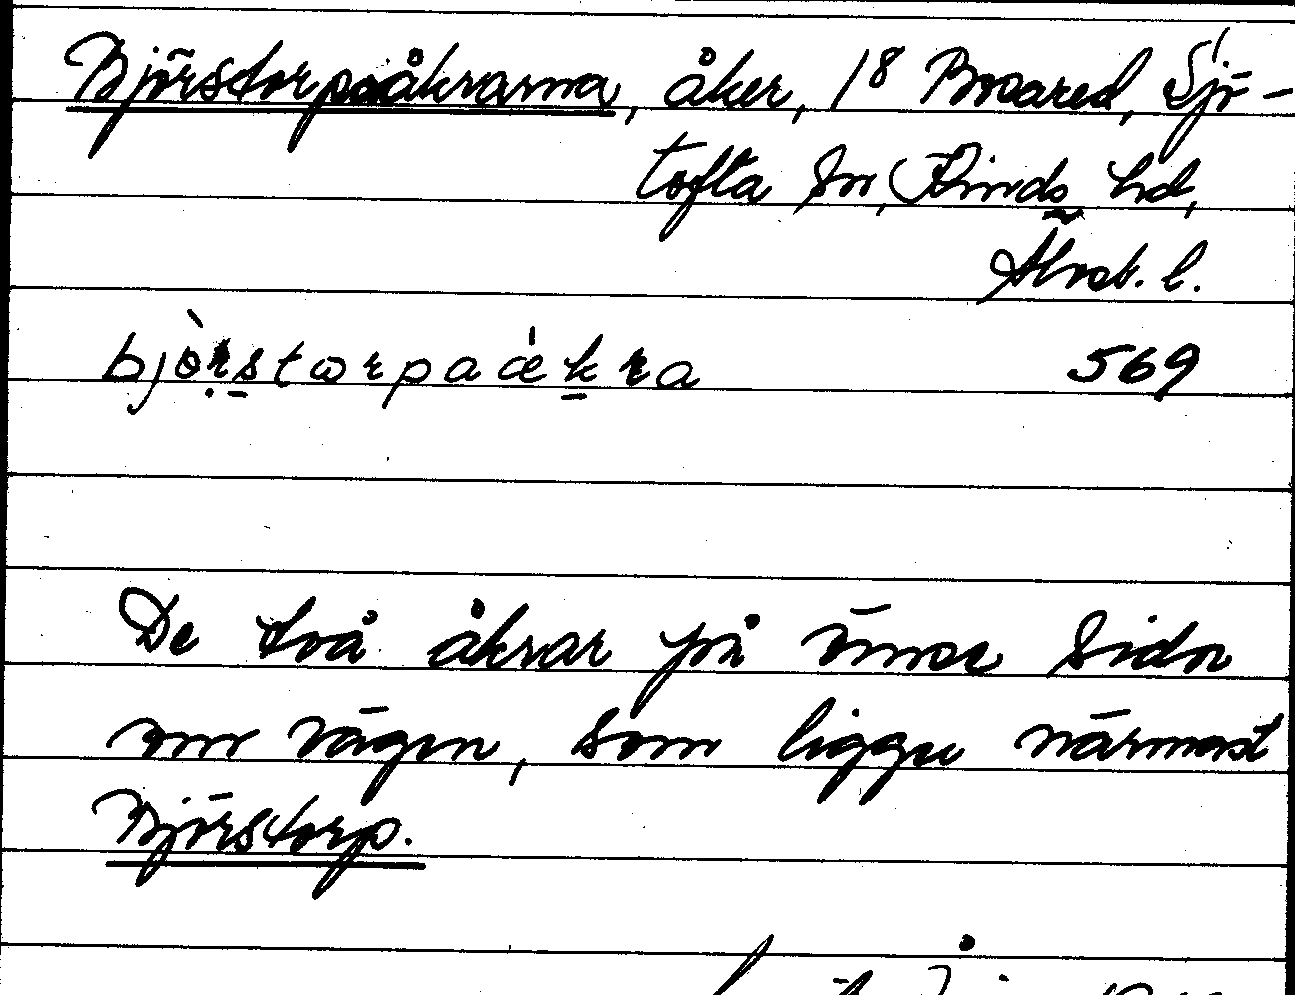 Björstorpaåkrarna, åker, 18 Boared, Sjö-
tofta sn, Kinds hd,
Älvsb. l.
bjòṛs̱torpaáeḵra 569
De två åkrar på ömse sidor
om vägen, som ligger närmast
Björstorp.